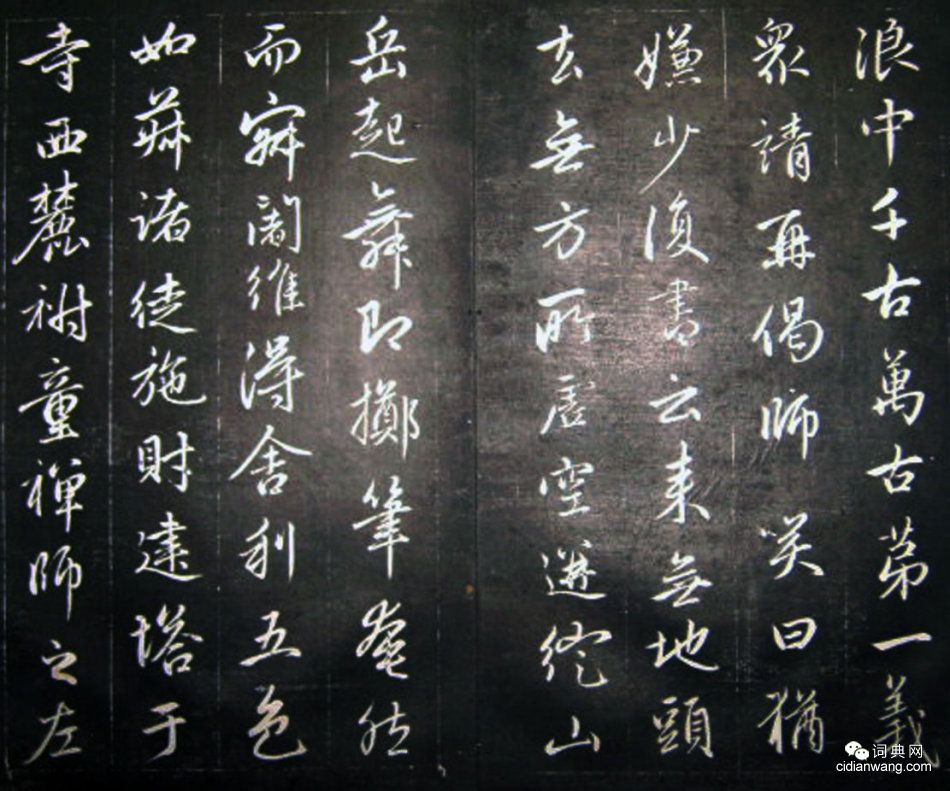 浪中千古萬古第一義
眾請再偈師咲曰猶
嫌少復書云来無地頭
去無方所虛空迸綻山
岳起舞即擲筆奄然
而寂闍維得舍利五色
如菽諸徒施財建塔于
寺西麓祔童禪師之左
词典网
cidianwang.com